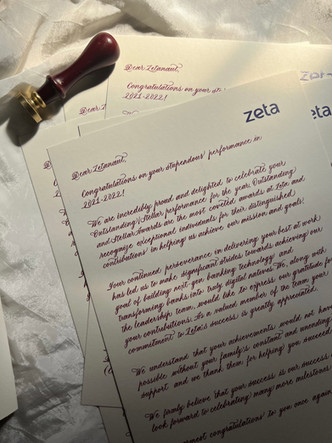 Dear Zetanaut,
Congratulations on your stupendous
2021-2022!
zeta
zeta
Dear Zetanaut,
Congratulations on your stupendous performance in
2021-2022!
We are incredibly proud and delighted to celebrate your
Outstanding/Stellar performance for the year. Outstanding
and Stellar Awards are the most coveted awards at Zeta and
recognize exceptional individuals for their distinguished
contributions in helping us achieve our mission and goals!
Your continued perseverance in delivering your best at work
has led us to make significant strides towards achieving our
goal of building next-gen banking technology and
transforming banks into truly digital natives. We, along with
the leadership team, would like to express our gratitude for
your contributions. As a valued member of the team your
commitment to Zeta's success is greatly appreciated.
We understand that your achievements would not have
possible without your family's constant and unending
support and we thank them for helping you succeed
We firmly believe that your success is our success
look forward to celebrating many more milestones
most congratulations to you once again